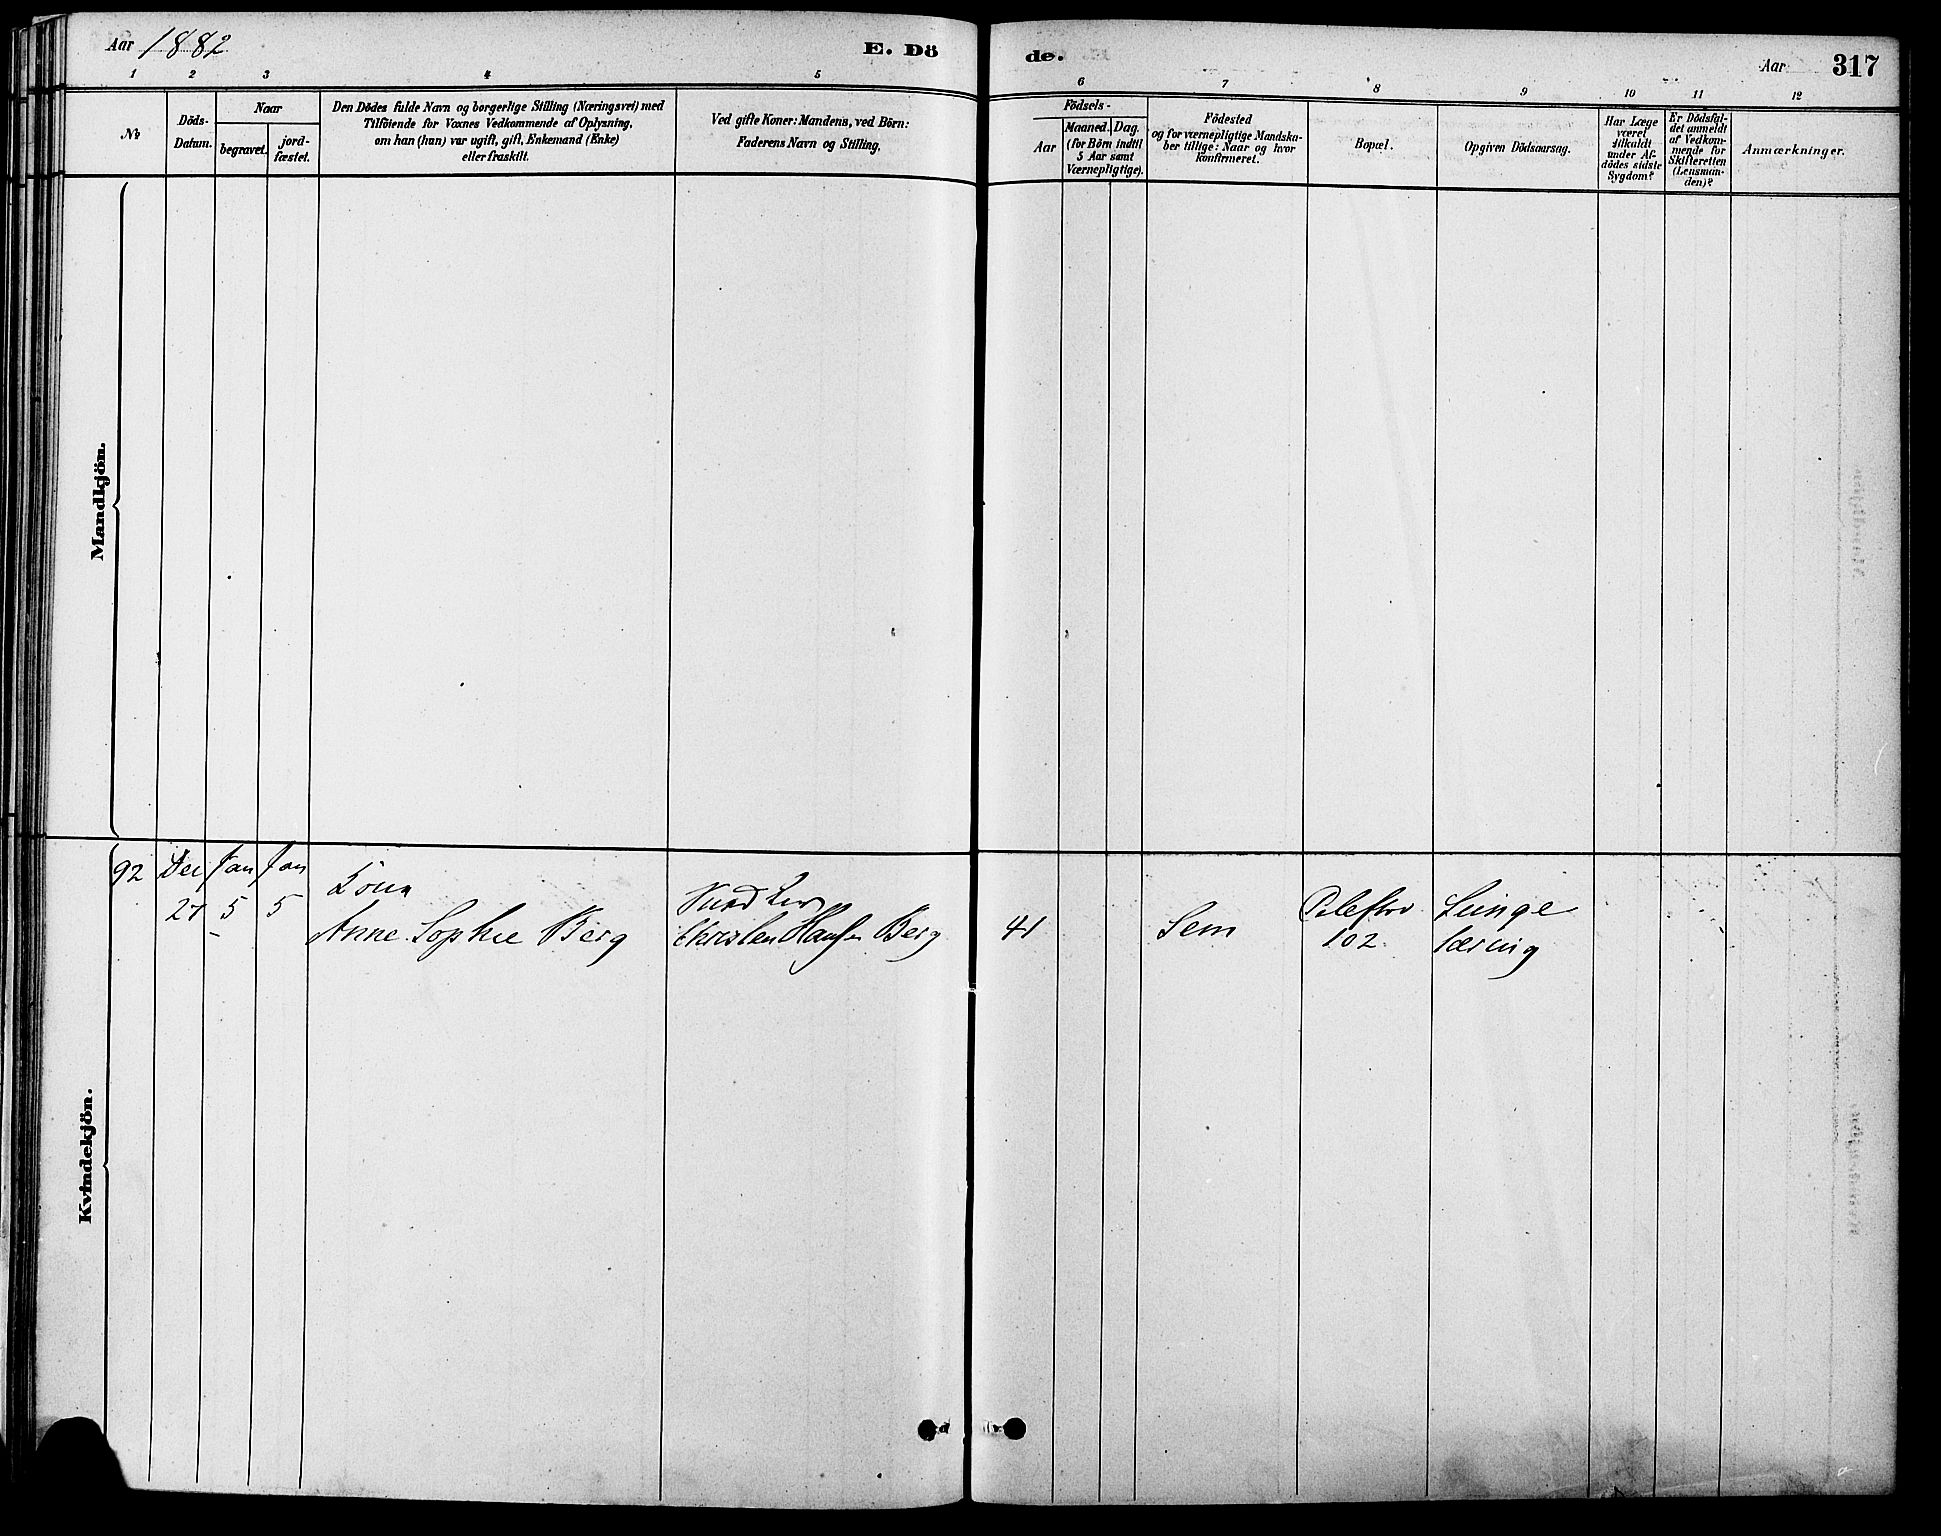 Aar 1882
E. Dö
de.
Aar
317
1 2 3 4 5 6 7 8 9 10 11 12
No
Döds-
Datum.
Naar
begravet.
jord-
fæstet.
Den Dödes fulde Navn og borgerlige Stilling (Næringsvei) med
Tilföiende for Voxnes Vedkommende af Oplysning,
om han (hun) var ugift, gift, Enkemand (Enke)
eller fraskilt.
Ved gifte Koner: Mandens, ved Börn:
Faderens Navn og Stilling.
Födsels-
Aar
Maaned. Dag.
(for Börn indtil
5 Aar samt
Værnepligtige).
Födested
og for værnepligtige Mandska-
ber tillige: Naar og hvor
konfirmeret.
Bopæl.
Opgiven Dödsaarsag.
Har Læge
været
tilkaldt
under Af-
dödes sidste
Sygdom?
Er Dödsfal-
det anmeldt
af Vedkom-
mende for
Skifteretten
(Lensman-
den)?
Anmærkninger.
Mandkjön.
Kvindekjön.
92 Dec Jan Jan
27 5 5
Kone
Anne Sophie Berg
Christen Hansen Berg
41
Sem
102
Lunge
tæring